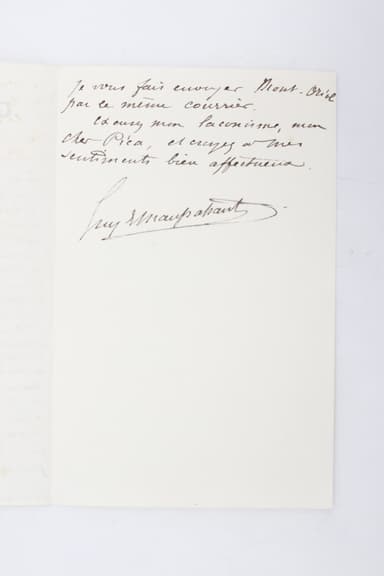 Je vous fais envoyer Mont-Oriol
par le même courrier.
Excusez mon laconisme, mon
cher Pica, et croyez à mes
sentiments bien affectueux.
Guy de Maupassant